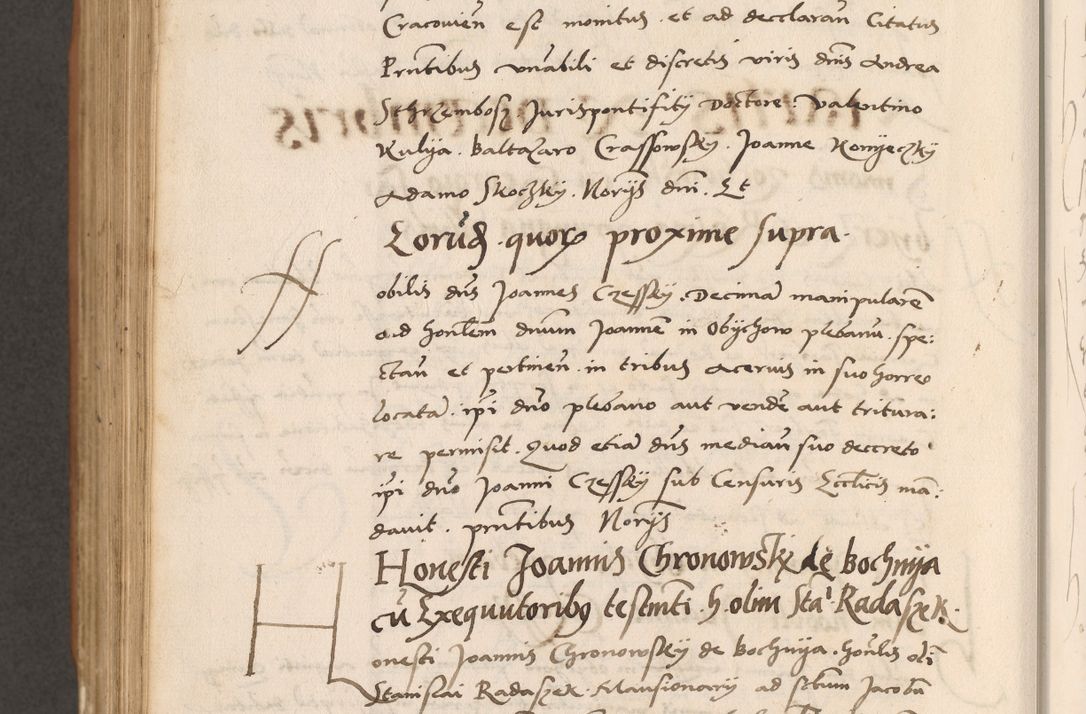 Cracovien est monitus et ad declaran Citatus
Pntibus vnabili et discretis viris dnis Andrea
Sthrzembosz Jurispontifity Doctore. Valentino
Kulya. Baltazaro Crassowsky. Joanne Konyeczky
Adamo Skoczky. Norys dni. Et
Eorud. quorx proxime supra.
obilis dns Joannes Czessky. Decima manipularem
ad honlem dnum Joannem in Obychow plebanu. spe:
ctan et pertinen. in tribus Acervis in suo horreo
locata. ipi dno plebano aut vende aut tritura:
re permisit. Quod etia dns mediau suo decreto
ipi dno Joanni Czessky sub Censuris Ecclicis man:
davit. pntibus Norys
Honesti Joannis Chronowsky de Bochnya
cu Exequutoribus testmti. h. olim Sta Radaszek.
H
onesti Joannis Chronowsky de Bochnya. honlis oli
Stanislai Radaszek. Mansionary ad sctum Jacobu